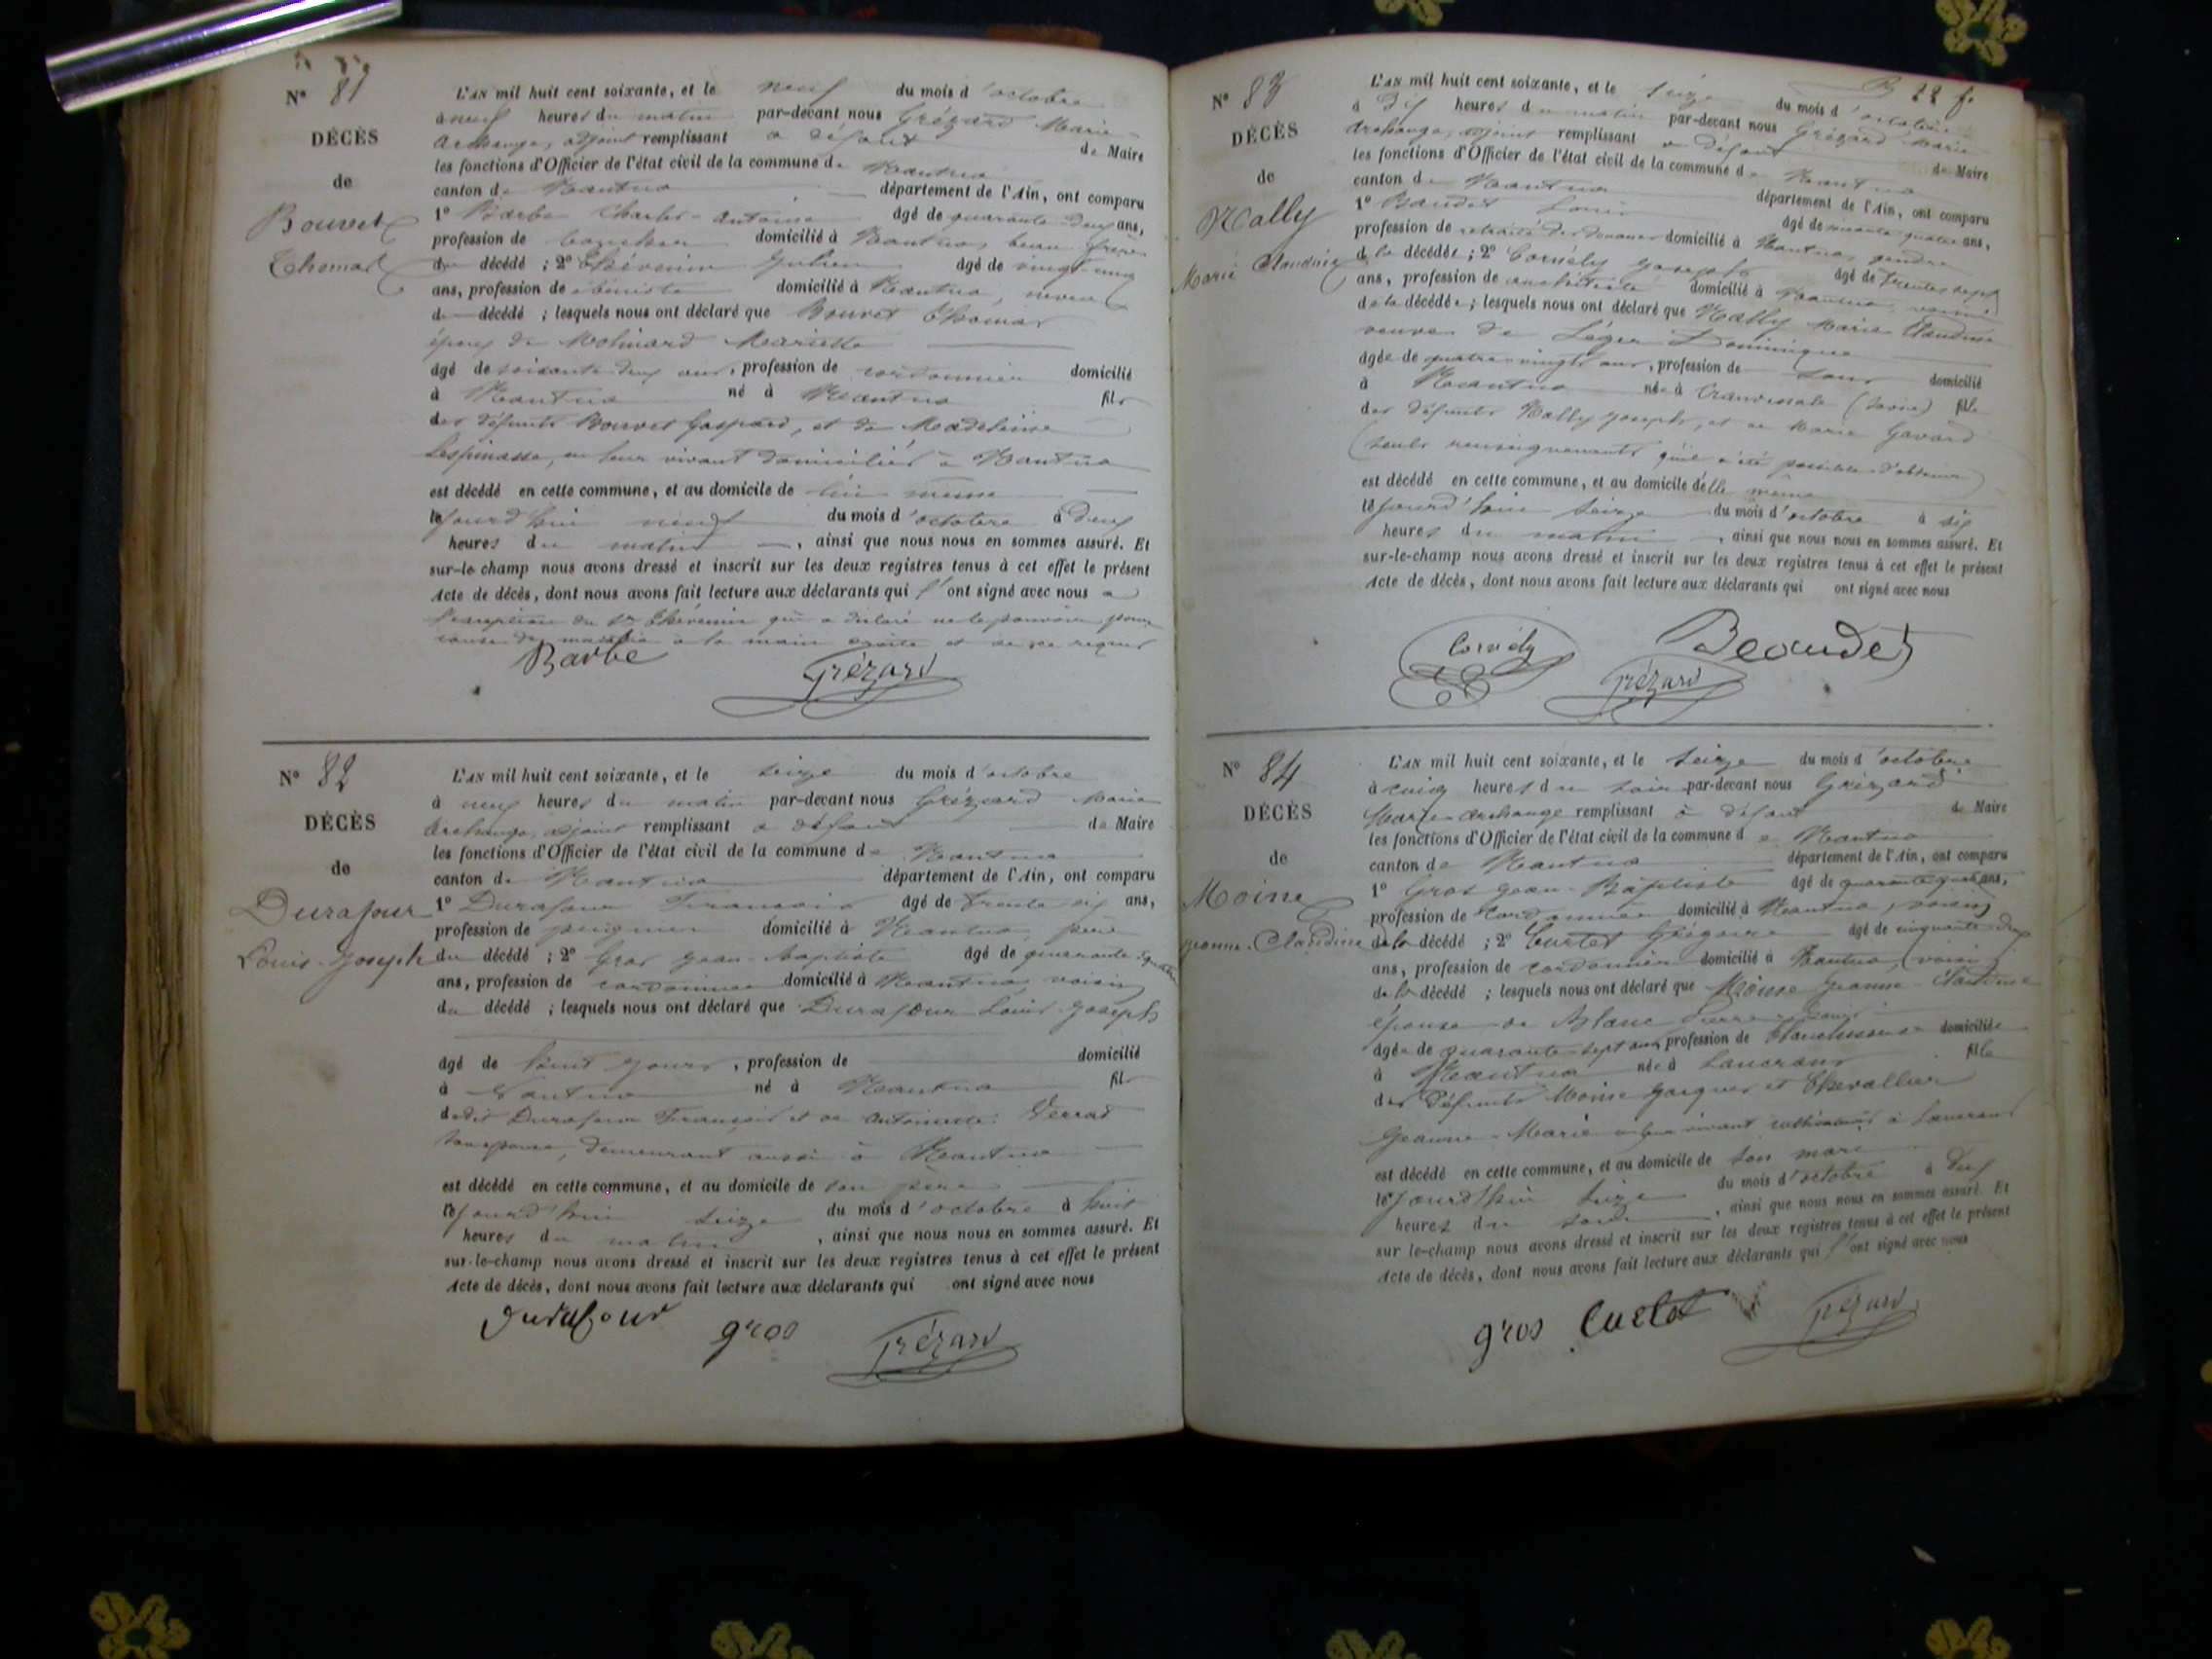 N° 81
DÉCÈS
de
Bouvet
Thomas
L'AN mil huit cent soixante, et le neuf du mois d'octobre
à neuf heures du matin par-devant nous Grézard Marie-
Archange, adjoint remplissant à défaut de Maire
les fonctions d'Officier de l'état civil de la commune de Nantua
canton de Nantua département de l'Ain, ont comparu
1° Barbe Charles-Antoine âgé de quarante-deux ans,
profession de domicilié à Nantua, beau-frère
du décédé ; 2° Thévenin Julien âgé de vingt-cinq
ans, profession de ébéniste domicilié à Nantua, neveu
du décédé ; lesquels nous ont déclaré que Bouvet Thomas
époux de Molinard Mariette
âgé de soixante-deux ans, profession de cordonnier domicilié
à Nantua né à Nantua fils
des défunts Bouvet Gaspard, et de Madeleine
Lespinasse, en leur vivant domiciliés à Nantua
est décédé en cette commune, et au domicile de lui-même
le jourd'hui neuf du mois d'octobre à deux
heures du matin, ainsi que nous nous en sommes assuré. Et
sur-le champ nous avons dressé et inscrit sur les deux registres tenus à cet effet le présent
Acte de décès, dont nous avons fait lecture aux déclarants qui l'ont signé avec nous à
l'exception du Sr Thévenin qui a déclaré ne le pouvoir pour
cause de à la main droite et de ce requis
Barbe Grézard
N° 82
DÉCÈS
de
Durafour
Louis-Joseph
L'AN mil huit cent soixante, et le seize du mois d'octobre
à neuf heures du matin par-devant nous Grézard Marie
Archange, adjoint remplissant à défaut de Maire
les fonctions d'Officier de l'état civil de la commune de Nantua
canton de Nantua département de l'Ain, ont comparu
1° Durafour François âgé de trente-six ans,
profession de peigneur domicilié à Nantua, père
du décédé ; 2° Gros Jean-Baptiste âgé de quarante-quatre
ans, profession de cordonnier domicilié à Nantua, voisin
du décédé ; lesquels nous ont déclaré que Durafour Louis-Joseph
âgé de huit jours, profession de domicilié
à Nantua né à Nantua fils
dudit Durafour François et de Antoinette Verrat
son épouse, demeurant aussi à Nantua
est décédé en cette commune, et au domicile de son père
le jourd'hui seize du mois d'octobre à huit
heures du matin, ainsi que nous nous en sommes assuré. Et
sur-le-champ nous avons dressé et inscrit sur les deux registres tenus à cet effet le présent
Acte de décès, dont nous avons fait lecture aux déclarants qui ont signé avec nous
durafour gros Grézard
N° 83
DÉCÈS
de
Nally
Marie Claudine
L'AN mil huit cent soixante, et le seize du mois d'octobre
à dix heures du matin par-devant nous Grézard Marie
Archange, adjoint remplissant à défaut de Maire
les fonctions d'Officier de l'état civil de la commune de Nantua
canton de Nantua département de l'Ain, ont comparu
1° Baudet Louis âgé de soixante-quatre ans,
profession de retraité des douanes domicilié à Nantua, gendre
de la décédée ; 2° Cornély Joseph âgé de trente-sept
ans, profession de architecte domicilié à Nantua, voisin
de la décédée ; lesquels nous ont déclaré que Nally Marie Claudine
veuve de Léger Dominique
âgée de quatre-vingts ans, profession de sans domicilié
à Nantua née à fille
des défunts Nally Joseph, et de Marie Gavard
(seuls renseignements qu'il a été possible d'obtenir)
est décédé en cette commune, et au domicile d'elle-même
le jourd'hui seize du mois d'octobre à six
heures du matin, ainsi que nous nous en sommes assuré. Et
sur-le-champ nous avons dressé et inscrit sur les deux registres tenus à cet effet le présent
Acte de décès, dont nous avons fait lecture aux déclarants qui ont signé avec nous
Cornély Beaudet
Grézard
N° 84
DÉCÈS
de
Moine
Jeanne-Claudine
L'AN mil huit cent soixante, et le seize du mois d'octobre
à cinq heures du soir par-devant nous Grézard
Marie-Archange remplissant à défaut de Maire
les fonctions d'Officier de l'état civil de la commune de Nantua
canton de Nantua département de l'Ain, ont comparu
1° Gros Jean-Baptiste âgé de quarante-quatre ans,
profession de Cordonnier domicilié à Nantua, voisin
de la décédé ; 2° Curtet Grégoire âgé de cinquante-deux
ans, profession de cordonnier domicilié à Nantua, voisin
de la décédé ; lesquels nous ont déclaré que Moine Jeanne-Claudine
épouse de Blanc Pierre-Louis
âgée de quarante-sept ans, profession de blanchisseuse domiciliée
à Nantua née à Lancrans fille
des défunts Moine Jacques et Chevallier
Jeanne-Marie en leur vivant cultivateurs à Lancrans
est décédé en cette commune, et au domicile de son mari
le jourd'hui seize du mois d'octobre à deux
heures du soir, ainsi que nous nous en sommes assuré. Et
sur le-champ nous avons dressé et inscrit sur les deux registres tenus à cet effet le présent
Acte de décès, dont nous avons fait lecture aux déclarants qui l'ont signé avec nous
gros Curtet Grézard